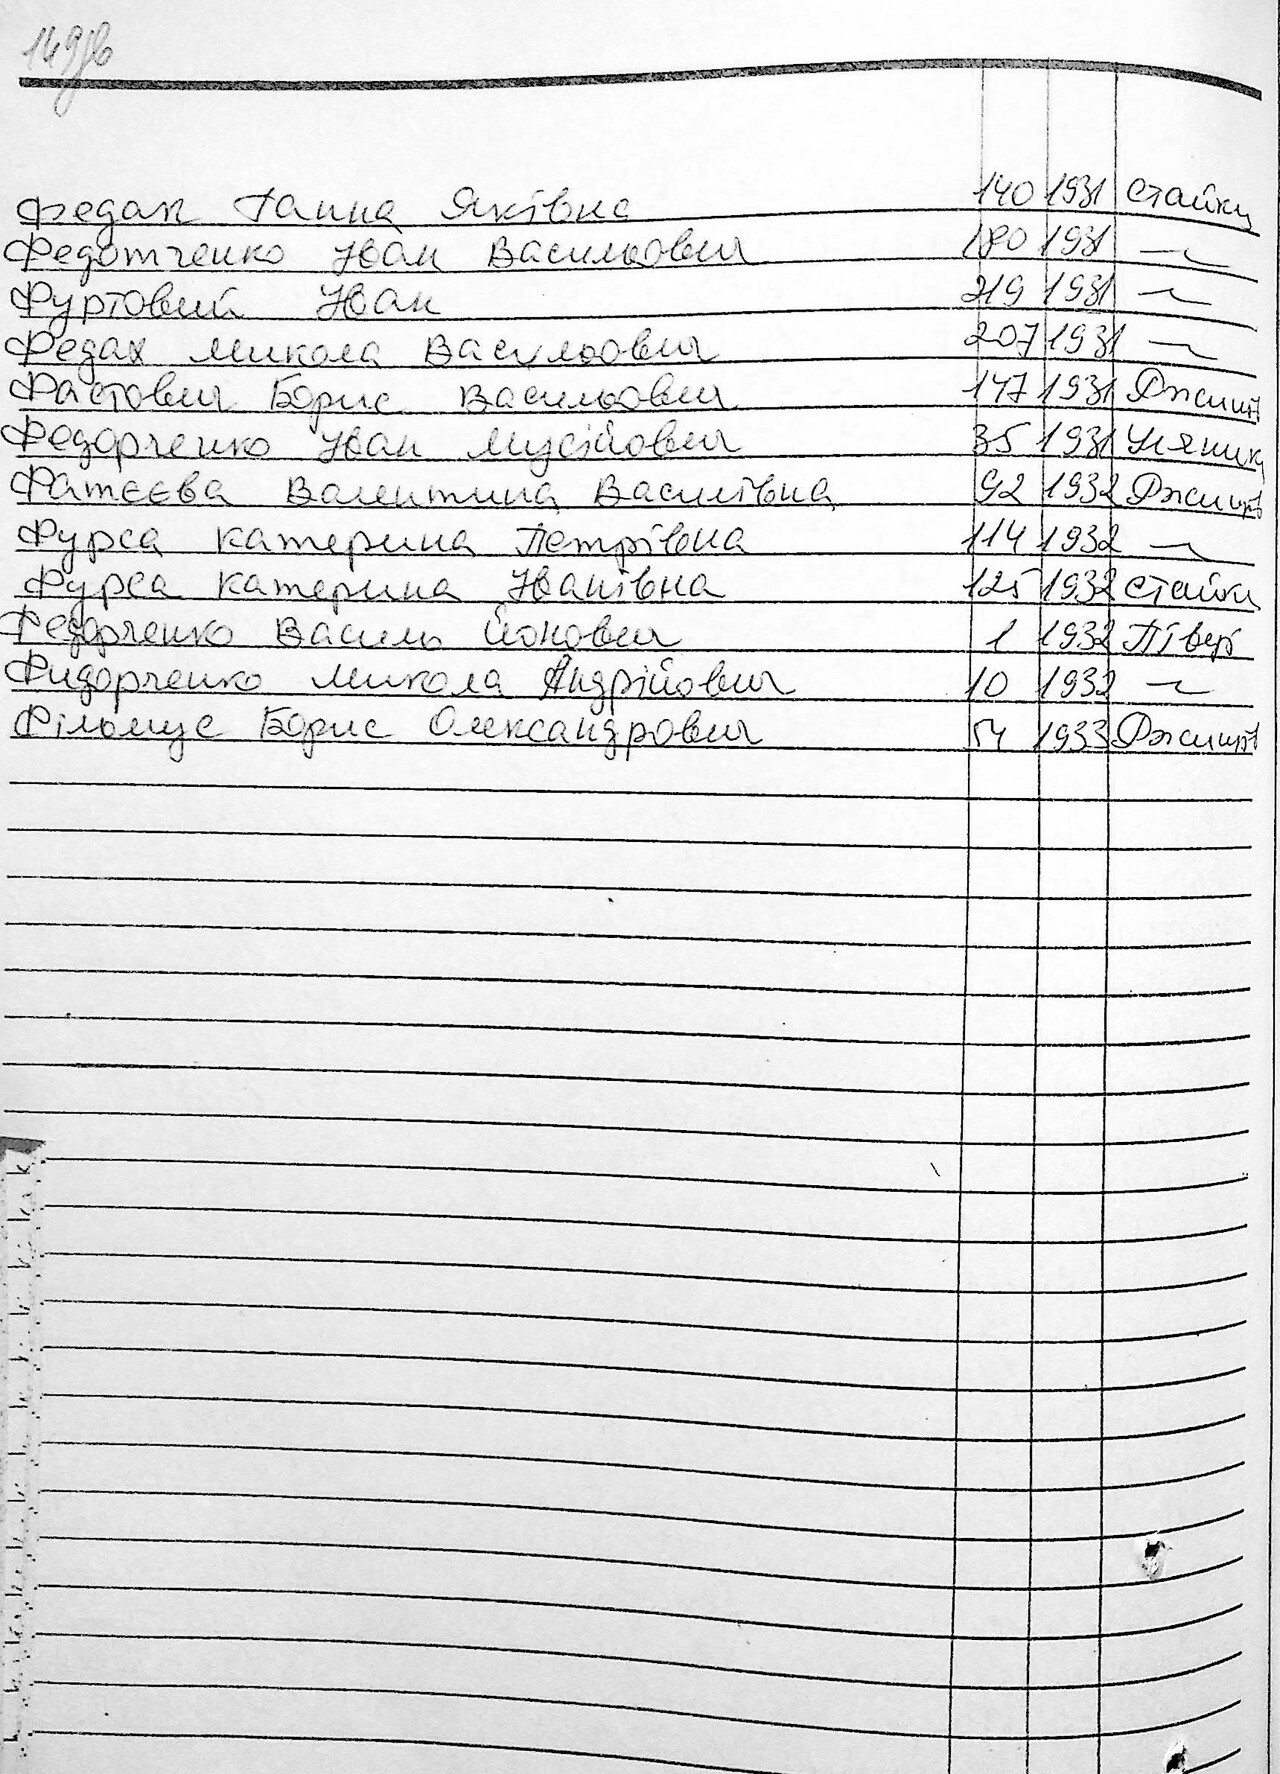 149зв
Федак Ганна Яківна 140 1931 Стайки
Федотченко Іван Васильович 180 1931 —〃—
Фуртовий Іван 219 1931 —〃—
Федах Микола Васильович 207 1931 —〃—
Фастович Борис Васильович 147 1931 Ржищів
Федорченко Іван Мусійович 35 1931 Уляники
Фатєєва Валентина Василівна 92 1932 Ржищів
Фурса Катерина Петрівна 114 1932 —〃—
Фурса Катерина Іванівна 125 1932 Стайки
Федорченко Василь Йонович 1 1932 Півці
Фидорченко Микола Андрійович 10 1932 —〃—
Фільмус Борис Олександрович 54 1933 Ржищів